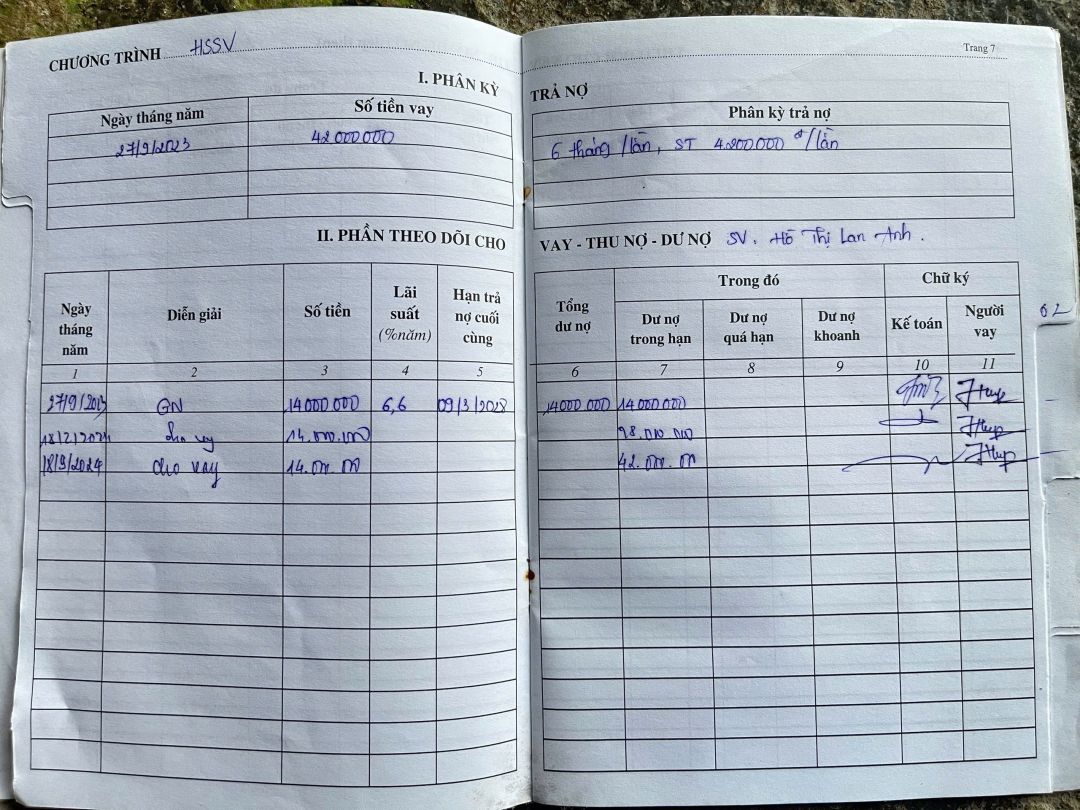 CHƯƠNG TRÌNH HSSV
Trang 7
I. PHÂN KỲ TRẢ NỢ
Ngày tháng năm Số tiền vay Phân kỳ trả nợ
27/9/2023 42000000 6 tháng /lần, ST 4.200.000 đ/lần
II. PHẦN THEO DÕI CHO VAY - THU NỢ - DƯ NỢ SV. Hồ Thị Lan Anh.
Ngày tháng năm Diễn giải Số tiền Lãi suất (%năm) Hạn trả nợ cuối cùng Tổng dư nợ Trong đó Chữ ký
Dư nợ trong hạn Dư nợ quá hạn Dư nợ khoanh Kế toán Người vay
1 2 3 4 5 6 7 8 9 10 11
27/9/2023 GN 14000000 6,6 09/3/2028 14000000 14000000
18/2/2024 cho vay 14.000.000 28.000.000
18/9/2024 cho vay 14.000.000 42.000.000